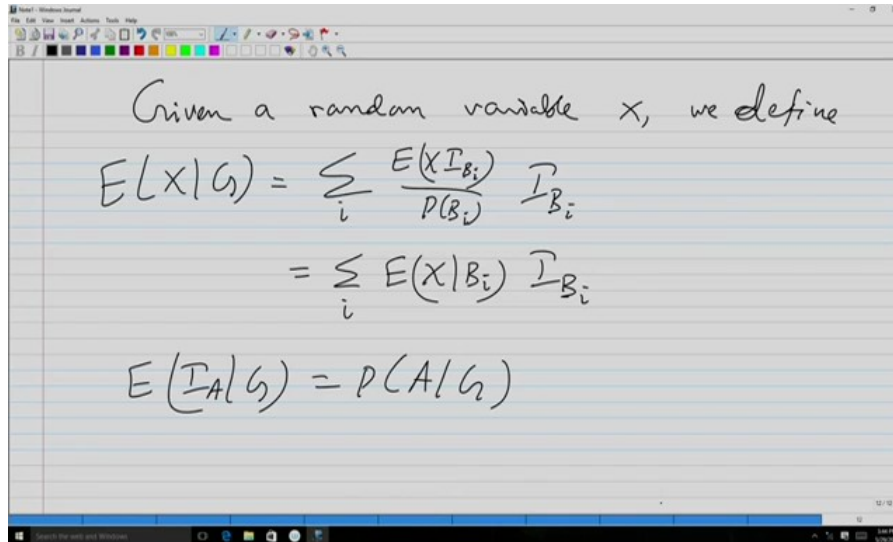 Note1 - Windows Journal
File Edit View Insert Actions Tools Help
B I
Given a random variable X, we define
E(X|G) = ∑_i E(X I_{B_i}) / P(B_i) I_{B_i}
= ∑_i E(X|B_i) I_{B_i}
E(I_A|G) = P(A|G)
12 / 12
12
Search the web and Windows